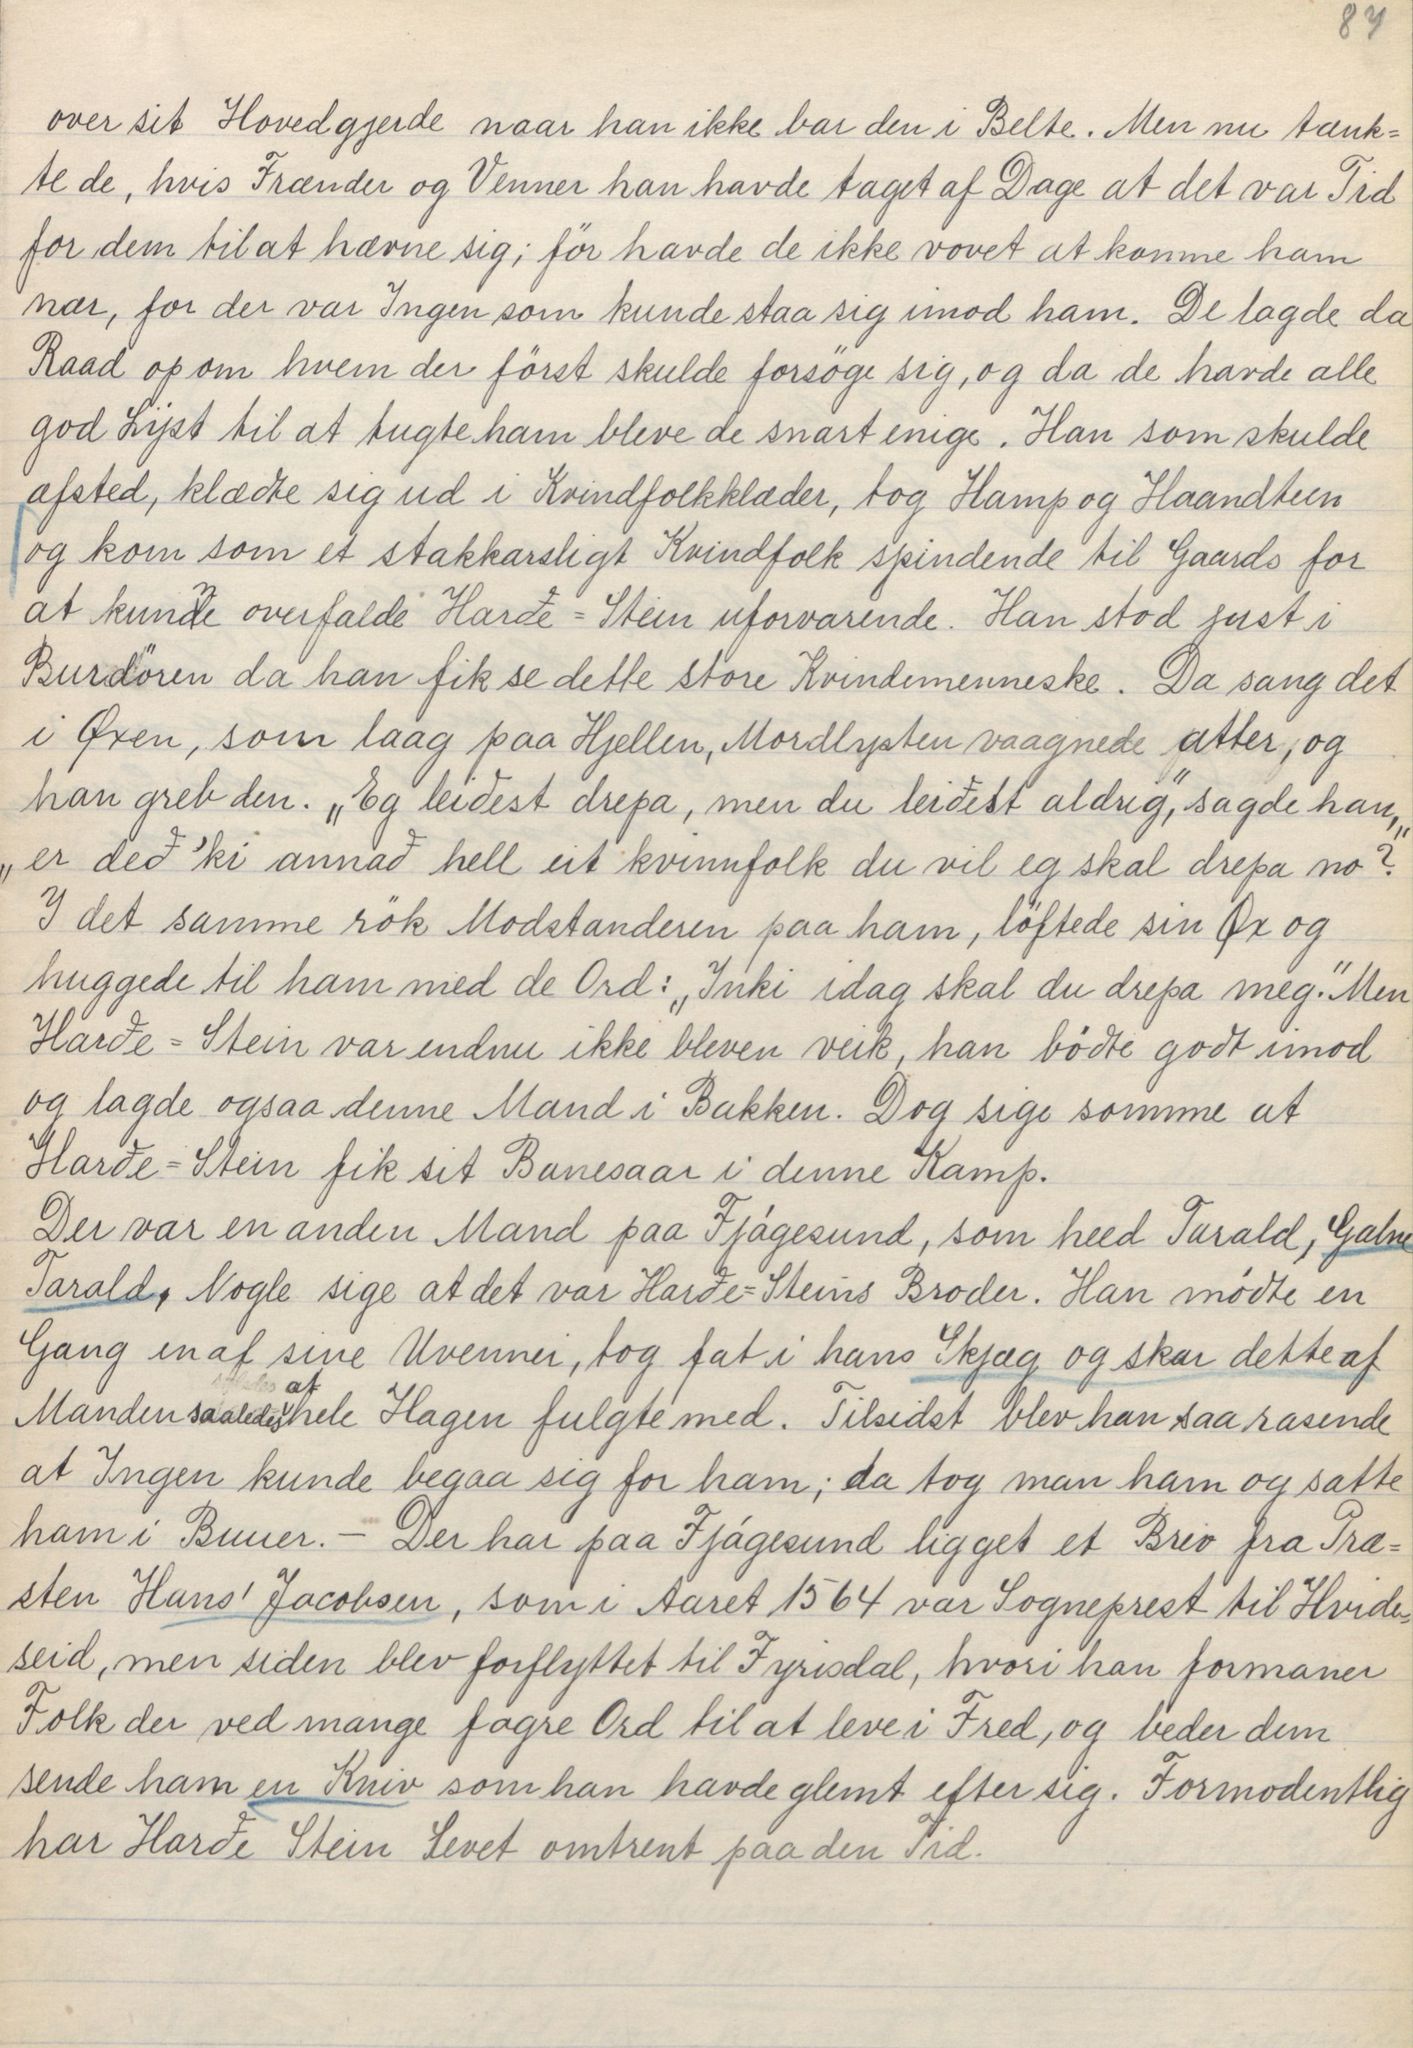 87
over sit Hovedgjerde naar han ikke bar den i Belte. Men nu tænk=
te de, hvis Frænder og Venner han havde taget af Dage at det var Tid
for dem til at hævne sig; för havde de ikke vovet at komme ham
nær, for der var Ingen som kunde staa sig imod ham. De lagde da
Raad op om hvem der först skulde forsöge sig, og da de havde alle
god Lyst til at tugte ham bleve de snart enige. Han som skulde
afsted, klædte sig ud i Kvindfolkklæder, tog Hamp og Haandteen
og kom som et stakkarsligt Kvindfolk spindende til Gaards for
at kunde overfalde Harðe=Stein uforvarende. Han stod just i
Burdören da han fik se dette store Kvindemenneske. Da sang det
i Øxen, som laag paa Hjellen, Mordlysten vaagnede atter, og
han greb den. „Eg leiðest drepa, men du leiðest aldrig", sagde han,
„er deð 'ki annað hell eit kvinnfolk du vil eg skal drepa no?"
I det samme rök Modstanderen paa ham, löftede sin Øx og
huggede til ham med de Ord: „Inki idag skal du drepa meg." Men
Harðe=Stein var endnu ikke bleven veik, han bödte godt imod
og lagde ogsaa denne Mand i Bakken. Dog sige somme at
Harðe=Stein fik sit Banesaar i denne Kamp.
Der var en anden Mand paa Fjágesund, som heed Tarald, Galne
Tarald, Nogle sige at det var Harðe=Steins Broder. Han mödte en
Gang en af sine Uvenner, tog fat i hans Skjæg og skar dette af
Manden saaledes at hele Hagen fulgte med. Tilsidst blev han saa rasende
at Ingen kunde begaa sig for ham; da tog man ham og satte
ham i Buuer. — Der har paa Fjágesund ligget et Brev fra Præ=
sten Hans Jacobsen, som i Aaret 1564 var Sogneprest til Hvide=
seid, men siden blev forflyttet til Fyrisdal, hvori han formaner
Folk der ved mange fagre Ord til at leve i Fred, og beder dem
sende ham en Kniv som han havde glemt efter sig. Formodentlig
har Harðe Stein Levet omtrent paa den Tid.